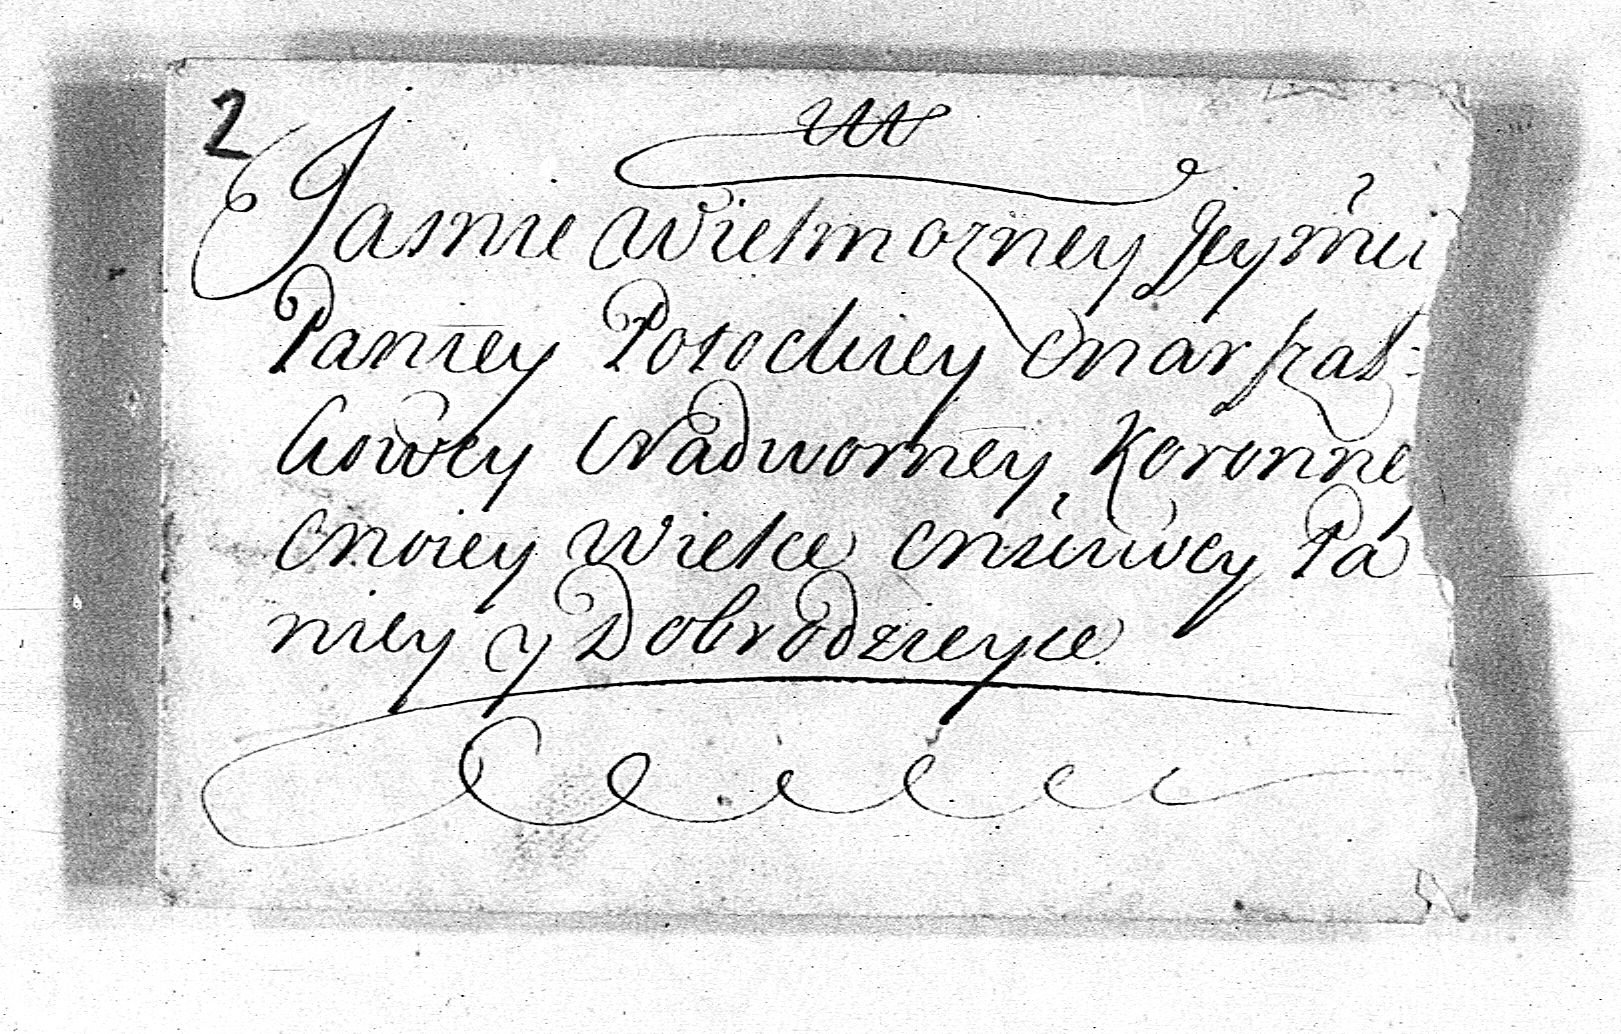 2
Jasnie Wielmozney Jeymci
Paniey Potockiey Marszał-
kowey Nadworney Koronne
Moiey Wielce Mściwey Pa
niey y Dobrodzieyce